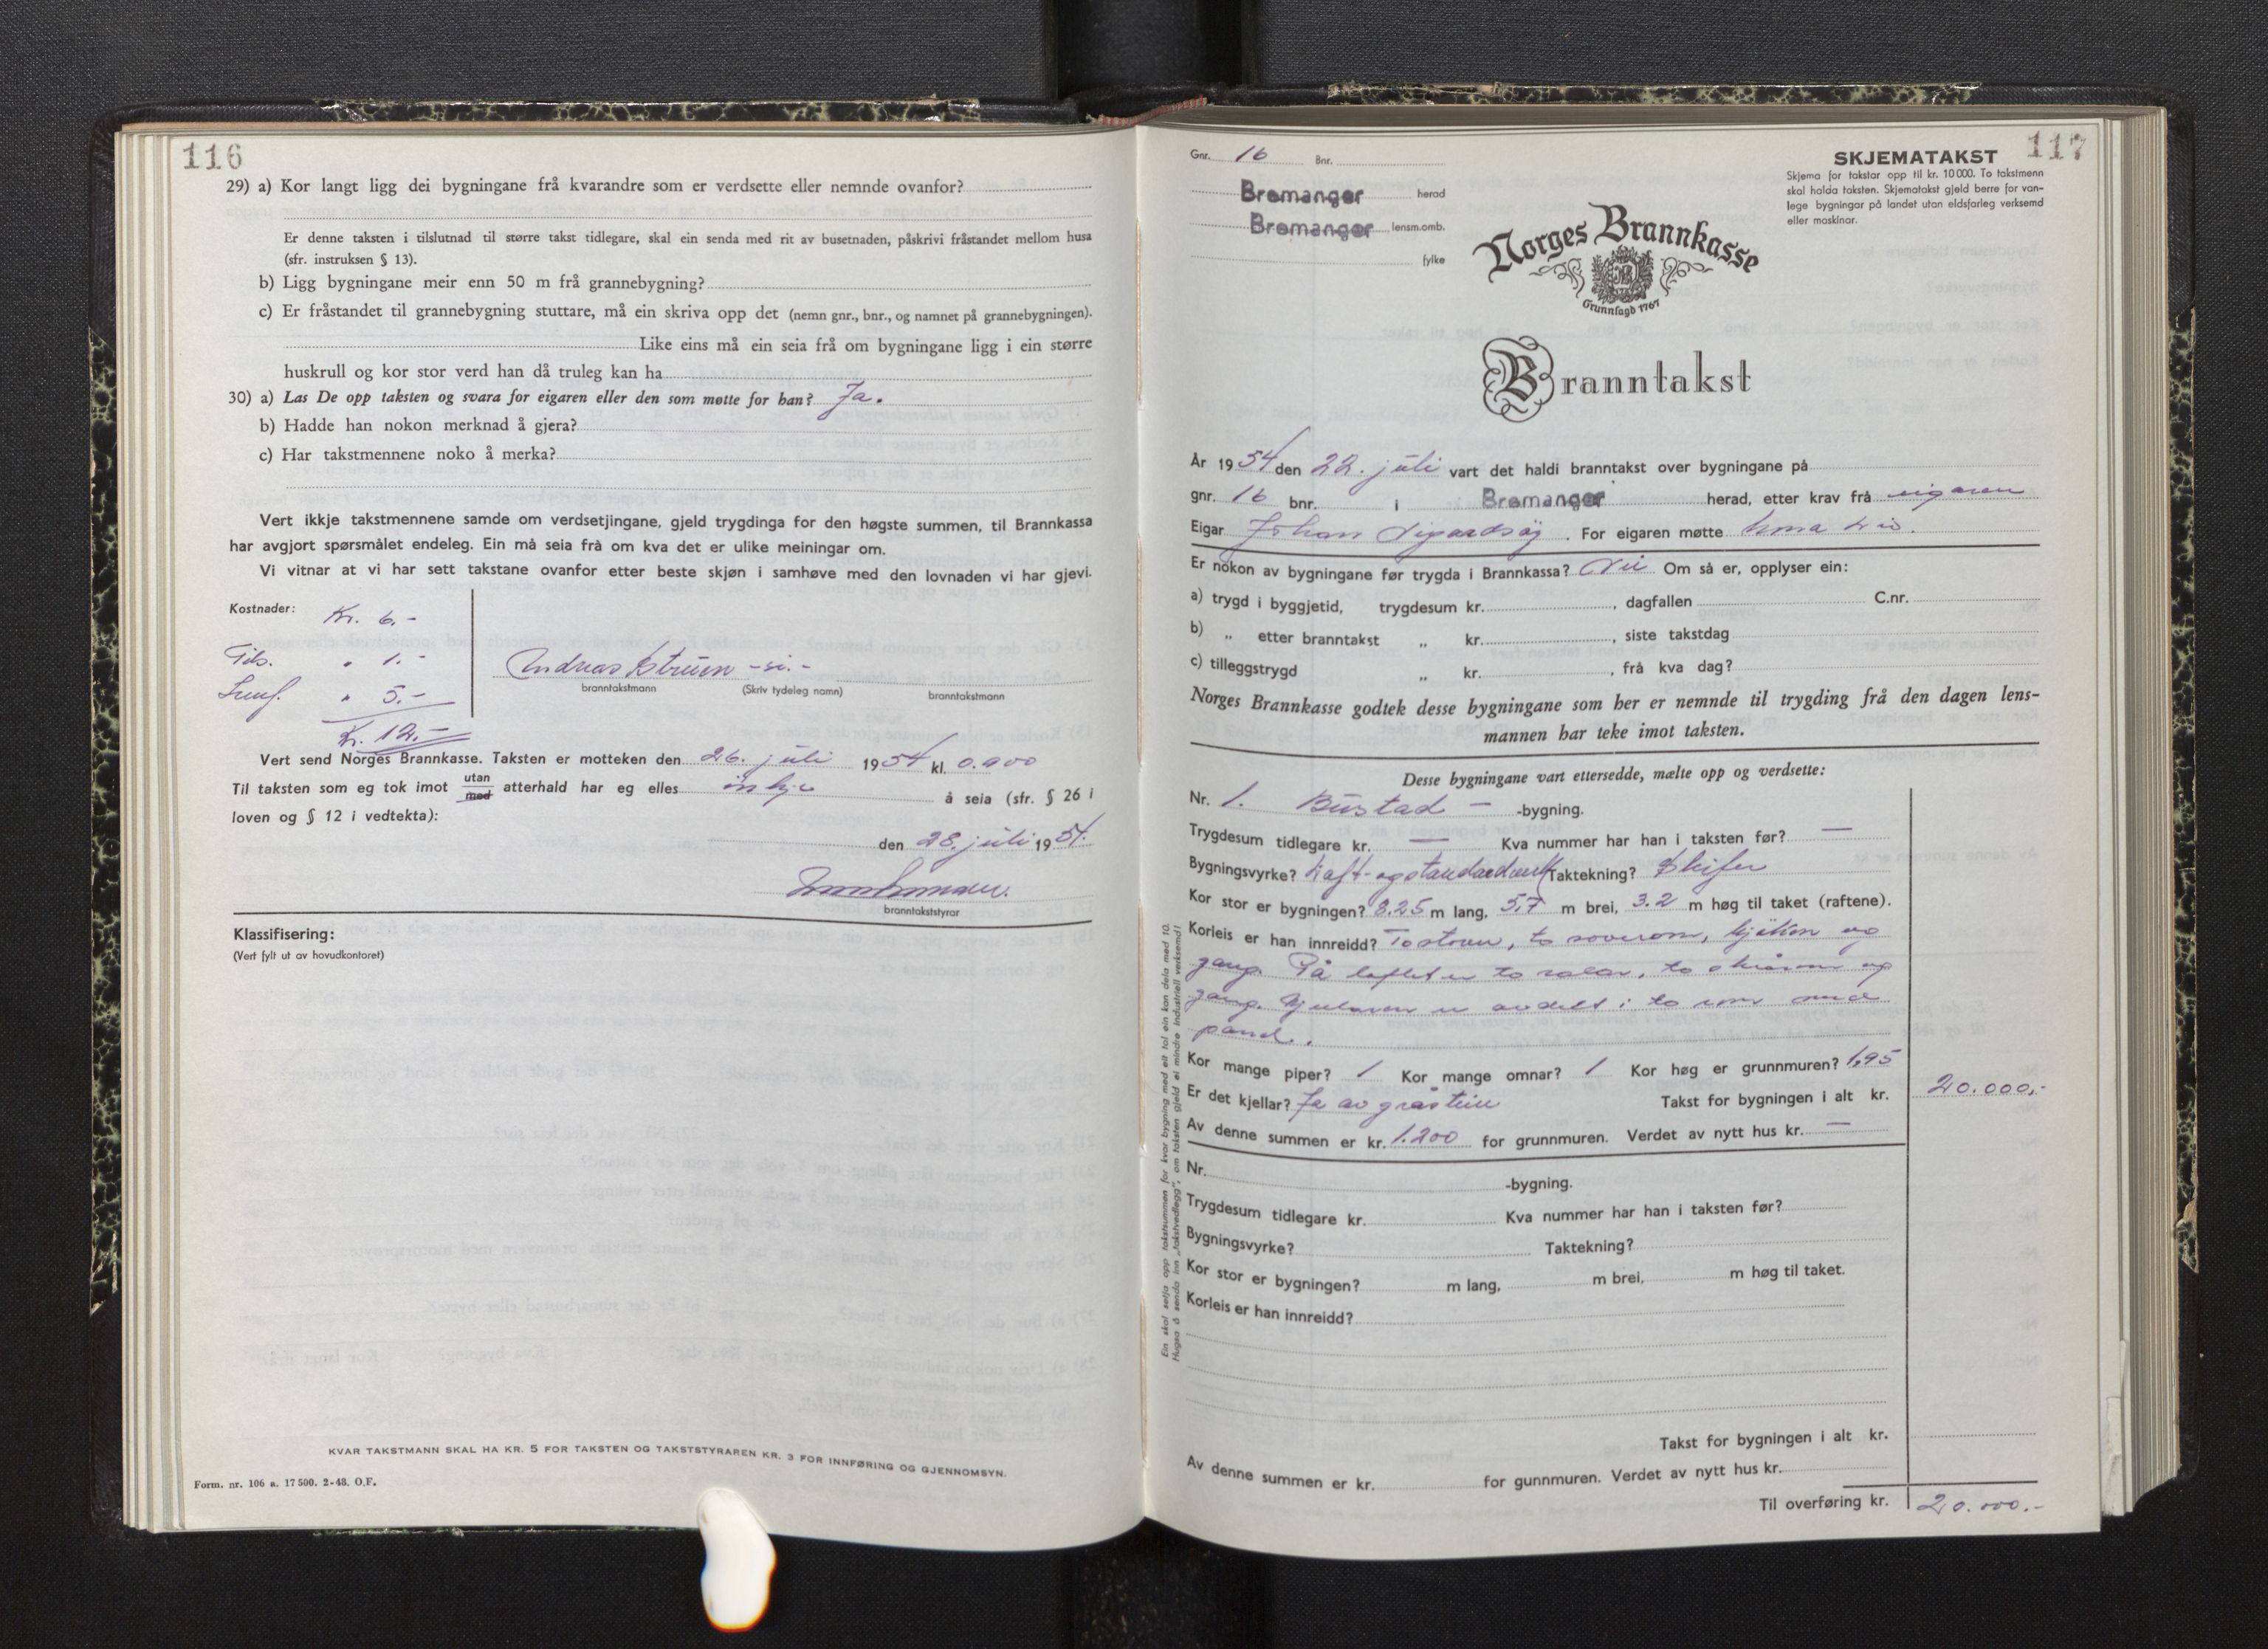 116
29) a) Kor langt ligg dei bygningane frå kvarandre som er verdsette eller nemnde ovanfor?
Er denne taksten i tilslutnad til større takst tidlegare, skal ein senda med rit av busetnaden, påskrivi fråstandet mellom husa
(sfr. instruksen § 13).
b) Ligg bygningane meir enn 50 m frå grannebygning?
c) Er fråstandet til grannebygning stuttare, må ein skriva opp det (nemn gnr., bnr., og namnet på grannebygningen).
Like eins må ein seia frå om bygningane ligg i ein større
huskrull og kor stor verd han då truleg kan ha
30) a) Las De opp taksten og svara for eigaren eller den som møtte for han? Ja.
b) Hadde han nokon merknad å gjera?
c) Har takstmennene noko å merka?
Vert ikkje takstmennene samde om verdsetjingane, gjeld trygdinga for den høgste summen, til Brannkassa
har avgjort spørsmålet endeleg. Ein må seia frå om kva det er ulike meiningar om.
Vi vitnar at vi har sett takstane ovanfor etter beste skjøn i samhøve med den lovnaden vi har gjevi.
Kostnader:
Kr. 6.-
" 1.-
" 5.-
Kr. 12.-
Andreas
branntakstmann (Skriv tydeleg namn) branntakstmann
Vert send Norges Brannkasse. Taksten er motteken den 26. juli 1954 kl. 0.900
Til taksten som eg tok imot utan/med atterhald har eg elles inkje å seia (sfr. § 26 i
loven og § 12 i vedtekta):
den 28. juli 1954.
branntakststyrar
Klassifisering:
(Vert fylt ut av hovudkontoret)
KVAR TAKSTMANN SKAL HA KR. 5 FOR TAKSTEN OG TAKSTSTYRAREN KR. 3 FOR INNFØRING OG GJENNOMSYN.
Form. nr. 106 a. 17 500. 2-48. O.F.
117
Gnr. 16 Bnr.
Bremanger herad
Bremanger lensm.omb.
fylke
SKJEMATAKST
Skjema for takstar opp til kr. 10 000. To takstmenn
skal halda taksten. Skjematakst gjeld berre for van-
lege bygningar på landet utan eldsfarleg verksemd
eller maskinar.
Norges Brannkasse
Grunnlagd 1767
Branntakst
År 1954 den 22. juli vart det haldi branntakst over bygningane på
gnr. 16 bnr. i Bremanger herad, etter krav frå eigaren
Eigar Johan . For eigaren møtte
Er nokon av bygningane før trygda i Brannkassa? Nei Om så er, opplyser ein:
a) trygd i byggjetid, trygdesum kr. , dagfallen C.nr.
b) „ etter branntakst „ kr. , siste takstdag
c) tilleggstrygd „ kr. , frå kva dag?
Norges Brannkasse godtek desse bygningane som her er nemnde til trygding frå den dagen lens-
mannen har teke imot taksten.
Desse bygningane vart ettersedde, mælte opp og verdsette:
Nr. 1. Bustad - -bygning.
Trygdesum tidlegare kr. — Kva nummer har han i taksten før? —
Bygningsvyrke? Laft- og standardverk Taktekning? Skifer
Kor stor er bygningen? 8.25 m lang, 5,7 m brei, 3.2 m høg til taket (raftene).
Korleis er han innreidd? To stover, to soverom, kjøken og
gang. På loftet er to salar, to og
gang. Kjellaren er avdelt i to rom med
panel.
Kor mange piper? 1 Kor mange omnar? 1 Kor høg er grunnmuren? 1,95
Er det kjellar? Ja av gråstein Takst for bygningen i alt kr. 20.000,-
Av denne summen er kr. 1.200 for grunnmuren. Verdet av nytt hus kr. —
Nr. -bygning.
Trygdesum tidlegare kr. Kva nummer har han i taksten før?
Bygningsvyrke? Taktekning?
Kor stor er bygningen? m lang, m brei, m høg til taket.
Korleis er han innreidd?
Takst for bygningen i alt kr.
Av denne summen er kr. for gunnmuren. Verdet av nytt hus kr.
Til overføring kr. 20.000.-
Ein skal setja opp takstsummen for kvar bygning med eit tal ein kan dela med 10.
Hugsa å senda inn „takstvedlegg", om taksten gjeld ei mindre industriell verksemd!